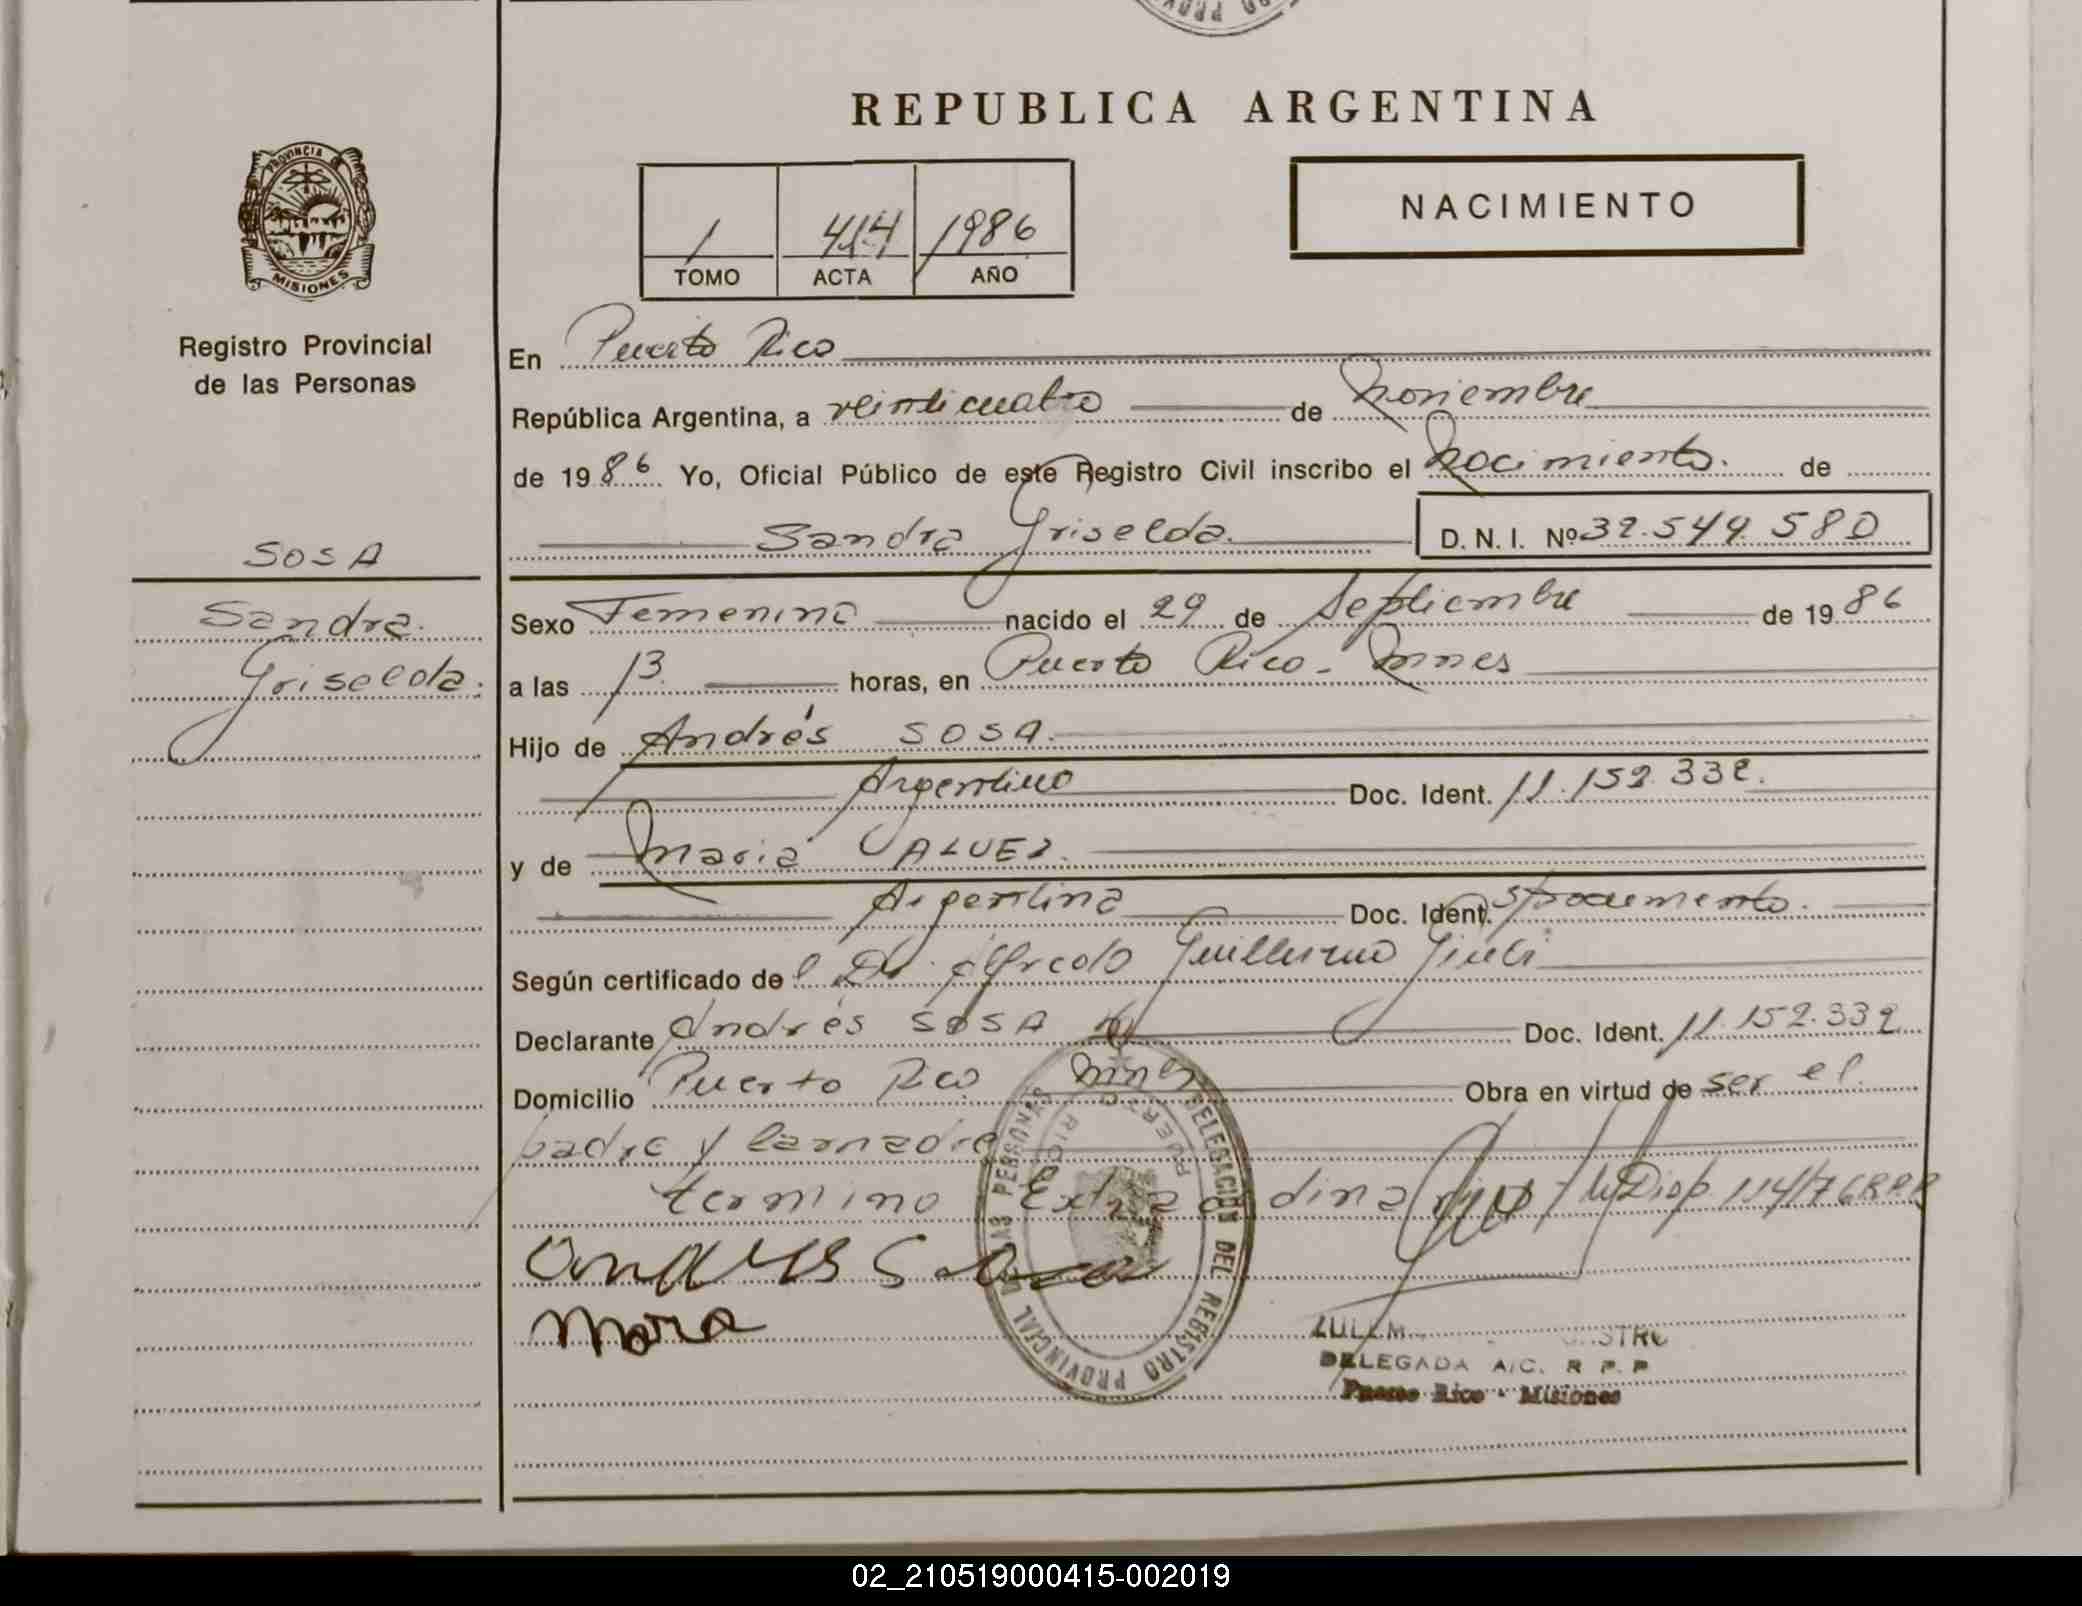 REPUBLICA ARGENTINA
PROVINCIA DE
MISIONES
Registro Provincial
de las Personas
SOSA
Sandra
Griselda.
1 414 1986
TOMO ACTA AÑO
NACIMIENTO
En Puerto Rico
República Argentina, a veinticuatro de Noviembre
de 1986 Yo, Oficial Público de este Registro Civil inscribo el Nacimiento. de
Sandra Griselda. D. N. I. Nº 32.549.580
Sexo Femenino nacido el 29 de Septiembre de 1986
a las 13 horas, en Puerto Rico - Mnes
Hijo de Andrés SOSA.
Argentino Doc. Ident. 11.152.332.
y de María ALVEZ.
Argentina Doc. Ident. s/documento.
Según certificado de l Dr. Alfredo Guillermo
Declarante Andrés SOSA Doc. Ident. 11.152.332
Domicilio Puerto Rico Mnes Obra en virtud de ser el
padre y la madre
termino Extraordinario 114/76 RRR
Maria
DELEGACION DEL REGISTRO PROVINCIAL DE LAS PERSONAS
PUERTO RICO
DELEGADA A/C. R P. P
Puerto Rico - Misiones
02_210519000415-002019